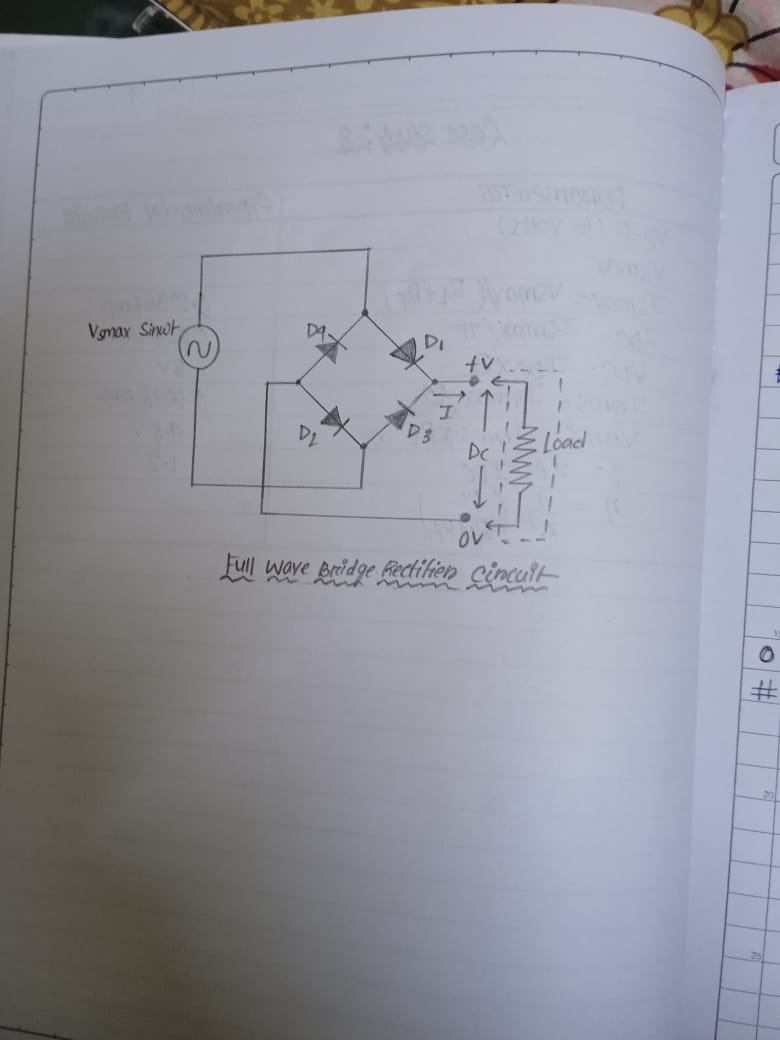 Vsmax Sinωt
D4
D1
+V
I
D2
D3
DC
Load
0V
Full Wave Bridge Rectifier Circuit
0
#
20
25